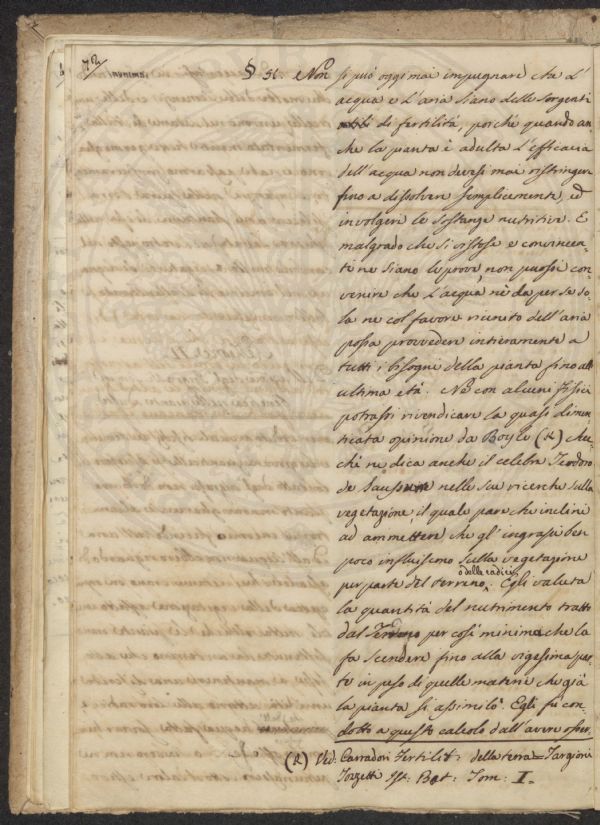 72
§ 56. Non si può oggi mai impugnare che l'
acqua e l'aria siano delle sorgenti
di fertilità, poiché quando an-
che la pianta è adulta l'efficacia
dell'acqua non devesi mai ristringere
fino a dissolvere semplicemente, ed
involgere le sostanze nutritive. E
malgrado che sì vistose e convincen-
ti ne siano le prove, non puossi con-
venire che l'acqua, nè da per se so-
la ne col favore riunito dell'aria
possa provvedere intieramente a
tutti i bisogni della pianta fino all'
ultima età. Nè con alcuni Fisici
potrassi rivendicare la quasi dimen-
ticata opinione da Boyle (k) che-
chè ne dica anche il celebre Teodoro
de Saussure nelle sue ricerche sulla
vegetazione, il quale pare che inclini
ad ammettere che gl'ingrassi ben
poco influissimo sulla vegetazione
per parte del terreno, o delle radici. Egli valuta
la quantità del nutrimento tratto
dal Terreno per così minima che la
fa scendere fino alla vigesima par-
te in peso di quelle materie che già
la pianta si assimilò. Egli fù con-
dotto a questo calcolo dall'avere osser-
(k) Ved: Carradori Fertilit: della terra = Targioni
Tozzetti Ist: Bot: Tom: I.